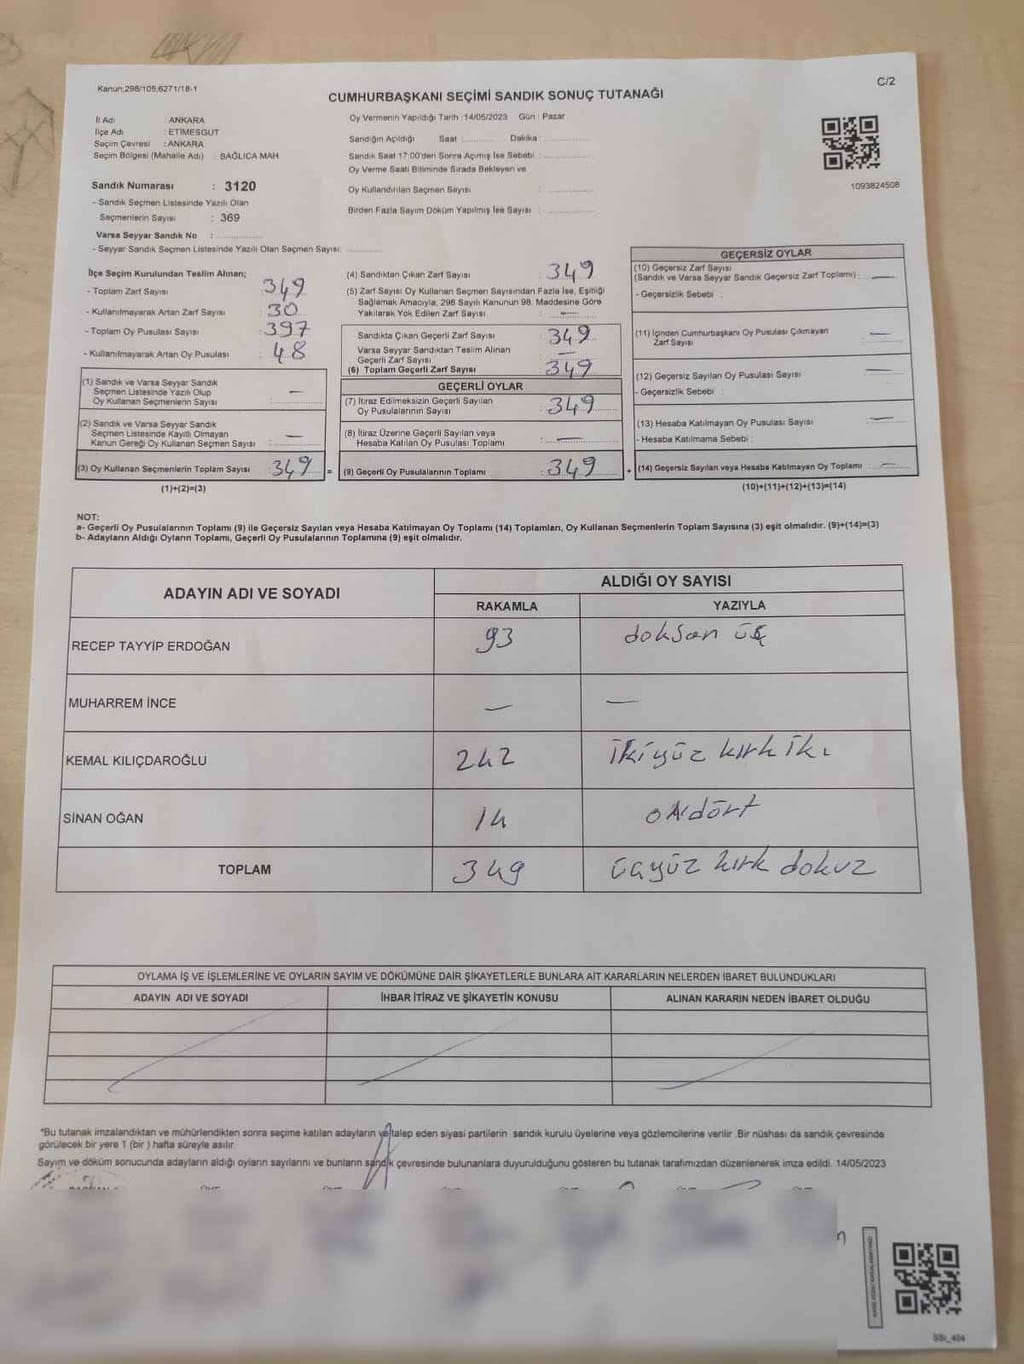 Kanun;298/105;6271/18-1
C/2
CUMHURBAŞKANI SEÇİMİ SANDIK SONUÇ TUTANAĞI
İl Adı : ANKARA
İlçe Adı : ETİMESGUT
Seçim Çevresi : ANKARA
Seçim Bölgesi (Mahalle Adı) : BAĞLICA MAH
Sandık Numarası : 3120
- Sandık Seçmen Listesinde Yazılı Olan
Seçmenlerin Sayısı : 369
Varsa Seyyar Sandık No :
- Seyyar Sandık Seçmen Listesinde Yazılı Olan Seçmen Sayısı:
Oy Vermenin Yapıldığı Tarih :14/05/2023 Gün : Pazar
Sandığın Açıldığı Saat Dakika
Sandık Saat 17:00'den Sonra Açımış İse Sebebi :
Oy Verme Saati Bitiminde Sırada Bekleyen ve
Oy Kullandırılan Seçmen Sayısı :
Birden Fazla Sayım Döküm Yapılmış İse Sayısı :
1093824508
İlçe Seçim Kurulundan Teslim Alınan;
- Toplam Zarf Sayısı : 349
- Kullanılmayarak Artan Zarf Sayısı : 30
- Toplam Oy Pusulası Sayısı : 397
- Kullanılmayarak Artan Oy Pusulası : 48
(1) Sandık ve Varsa Seyyar Sandık
Seçmen Listesinde Yazılı Olup
Oy Kullanan Seçmenlerin Sayısı : —
(2) Sandık ve Varsa Seyyar Sandık
Seçmen Listesinde Kayıtlı Olmayan
Kanun Gereği Oy Kullanan Seçmen Sayısı : —
(3) Oy Kullanan Seçmenlerin Toplam Sayısı : 349 =
(1)+(2)=(3)
(4) Sandıktan Çıkan Zarf Sayısı : 349
(5) Zarf Sayısı Oy Kullanan Seçmen Sayısından Fazla İse, Eşitliği
Sağlamak Amacıyla; 298 Sayılı Kanunun 98. Maddesine Göre
Yakılarak Yok Edilen Zarf Sayısı : —
Sandıkta Çıkan Geçerli Zarf Sayısı : 349
Varsa Seyyar Sandıktan Teslim Alınan
Geçerli Zarf Sayısı : —
(6) Toplam Geçerli Zarf Sayısı : 349
GEÇERLİ OYLAR
(7) İtiraz Edilmeksizin Geçerli Sayılan
Oy Pusulalarının Sayısı : 349
(8) İtiraz Üzerine Geçerli Sayılan veya
Hesaba Katılan Oy Pusulası Toplamı : —
(9) Geçerli Oy Pusulalarının Toplamı : 349 +
GEÇERSİZ OYLAR
(10) Geçersiz Zarf Sayısı
(Sandık ve Varsa Seyyar Sandık Geçersiz Zarf Toplamı) : —
- Geçersizlik Sebebi :
(11) İçinden Cumhurbaşkanı Oy Pusulası Çıkmayan
Zarf Sayısı : —
(12) Geçersiz Sayılan Oy Pusulası Sayısı : —
- Geçersizlik Sebebi :
(13) Hesaba Katılmayan Oy Pusulası Sayısı : —
- Hesaba Katılmama Sebebi :
(14) Geçersiz Sayılan veya Hesaba Katılmayan Oy Toplamı : —
(10)+(11)+(12)+(13)=(14)
NOT:
a- Geçerli Oy Pusulalarının Toplamı (9) ile Geçersiz Sayılan veya Hesaba Katılmayan Oy Toplamı (14) Toplamları, Oy Kullanan Seçmenlerin Toplam Sayısına (3) eşit olmalıdır. (9)+(14)=(3)
b- Adayların Aldığı Oyların Toplamı, Geçerli Oy Pusulalarının Toplamına (9) eşit olmalıdır.
ADAYIN ADI VE SOYADI
ALDIĞI OY SAYISI
RAKAMLA YAZIYLA
RECEP TAYYİP ERDOĞAN 93 doksan üç
MUHARREM İNCE — —
KEMAL KILIÇDAROĞLU 242 ikiyüz kırk iki
SİNAN OĞAN 14 ondört
TOPLAM 349 üçyüz kırk dokuz
OYLAMA İŞ VE İŞLEMLERİNE VE OYLARIN SAYIM VE DÖKÜMÜNE DAİR ŞİKAYETLERLE BUNLARA AİT KARARLARIN NELERDEN İBARET BULUNDUKLARI
ADAYIN ADI VE SOYADI İHBAR İTİRAZ VE ŞİKAYETİN KONUSU ALINAN KARARIN NEDEN İBARET OLDUĞU
*Bu tutanak imzalandıktan ve mühürlendikten sonra seçime katılan adayların ve talep eden siyasi partilerin sandık kurulu üyelerine veya gözlemcilerine verilir .Bir nüshası da sandık çevresinde
görülecek bir yere 1 (bir ) hafta süreyle asılır.
Sayım ve döküm sonucunda adayların aldığı oyların sayılarını ve bunların sandık çevresinde bulunanlara duyurulduğunu gösteren bu tutanak tarafımızdan düzenlenerek imza edildi. 14/05/2023